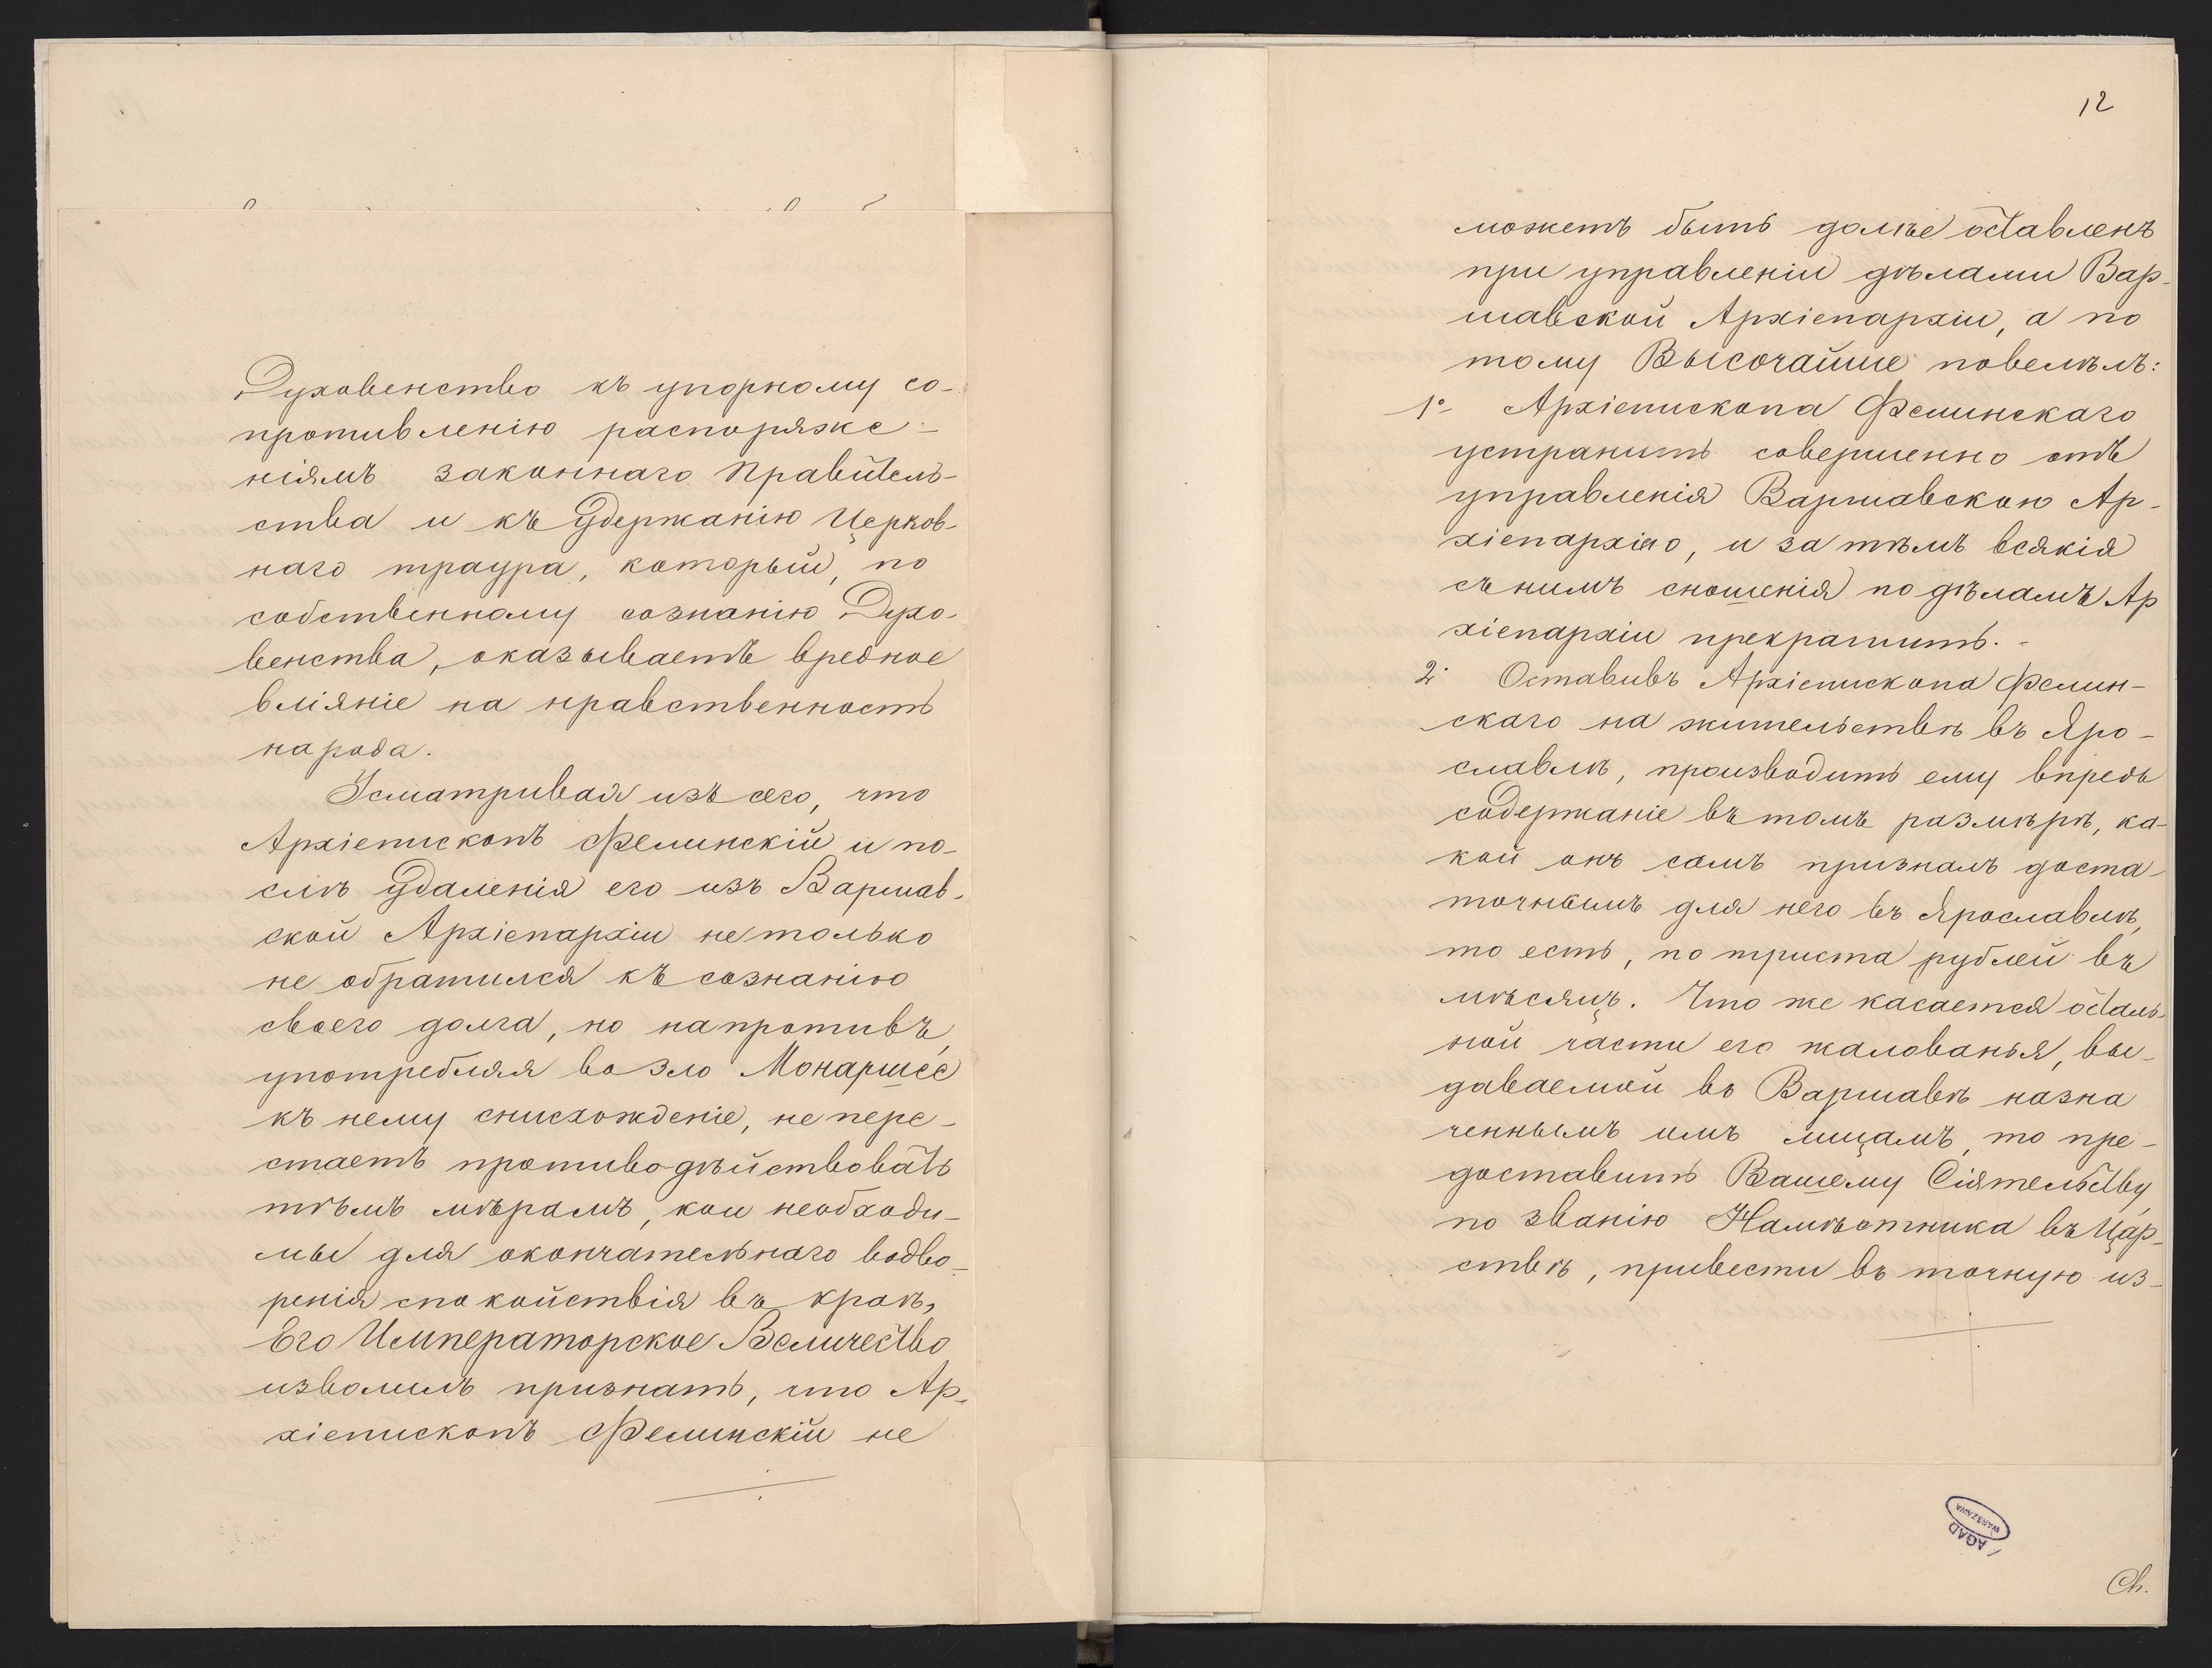 Духовенство къ упорному со-
противленію распоряже-
ніямъ законнаго Правитель-
ства и къ удержанію Церков-
наго траура, который, по
собственному сознанію Духо-
венства, оказываетъ вредное
вліяніе на нравственность
народа.
Усматривая изъ сего, что
Архіепископъ Фелинскій и по-
слѣ удаленія его изъ Варшав-
ской Архіепархіи не только
не обратился къ сознанію
своего долга, но напротивъ,
употребляя во зло Монаршее
къ нему снисхожденіе, не пере-
стаетъ противодѣйствовать
тѣмъ мѣрамъ, кои необходи-
мы для окончательнаго водво-
ренія спокойствія въ краѣ,
Его Императорское Величество
изволилъ признать, что Ар-
хіепископъ Фелинскій не
12
можетъ быть долѣе оставленъ
при управленіи дѣлами Вар-
шавской Архіепархіи, а по
тому Высочайше повелѣлъ:
1° Архіепископа Фелинскаго
устранить совершенно отъ
управленія Варшавскою Ар-
хіепархіею, и за тѣмъ всякія
съ нимъ сношенія по дѣламъ Ар
хіепархіи прекратить.-
2. Оставивъ Архіепископа Фелин-
скаго на жительствѣ въ Яро-
славлѣ, производить ему впредь
содержаніе въ томъ размѣрѣ, ка-
кой онъ самъ призналъ доста-
точнымъ для него въ Ярославлѣ,
то есть, по триста рублей въ
мѣсяцъ. Что же касается осталь-
ной части его жалованья, вы-
даваемой въ Варшавѣ назна
ченнымъ имъ лицамъ, то пре-
доставить Вашему Сіятельству,
по званію Намѣстника въ Цар-
ствѣ, привести въ точную из-
AGAD
WARSZAWA
Ch.